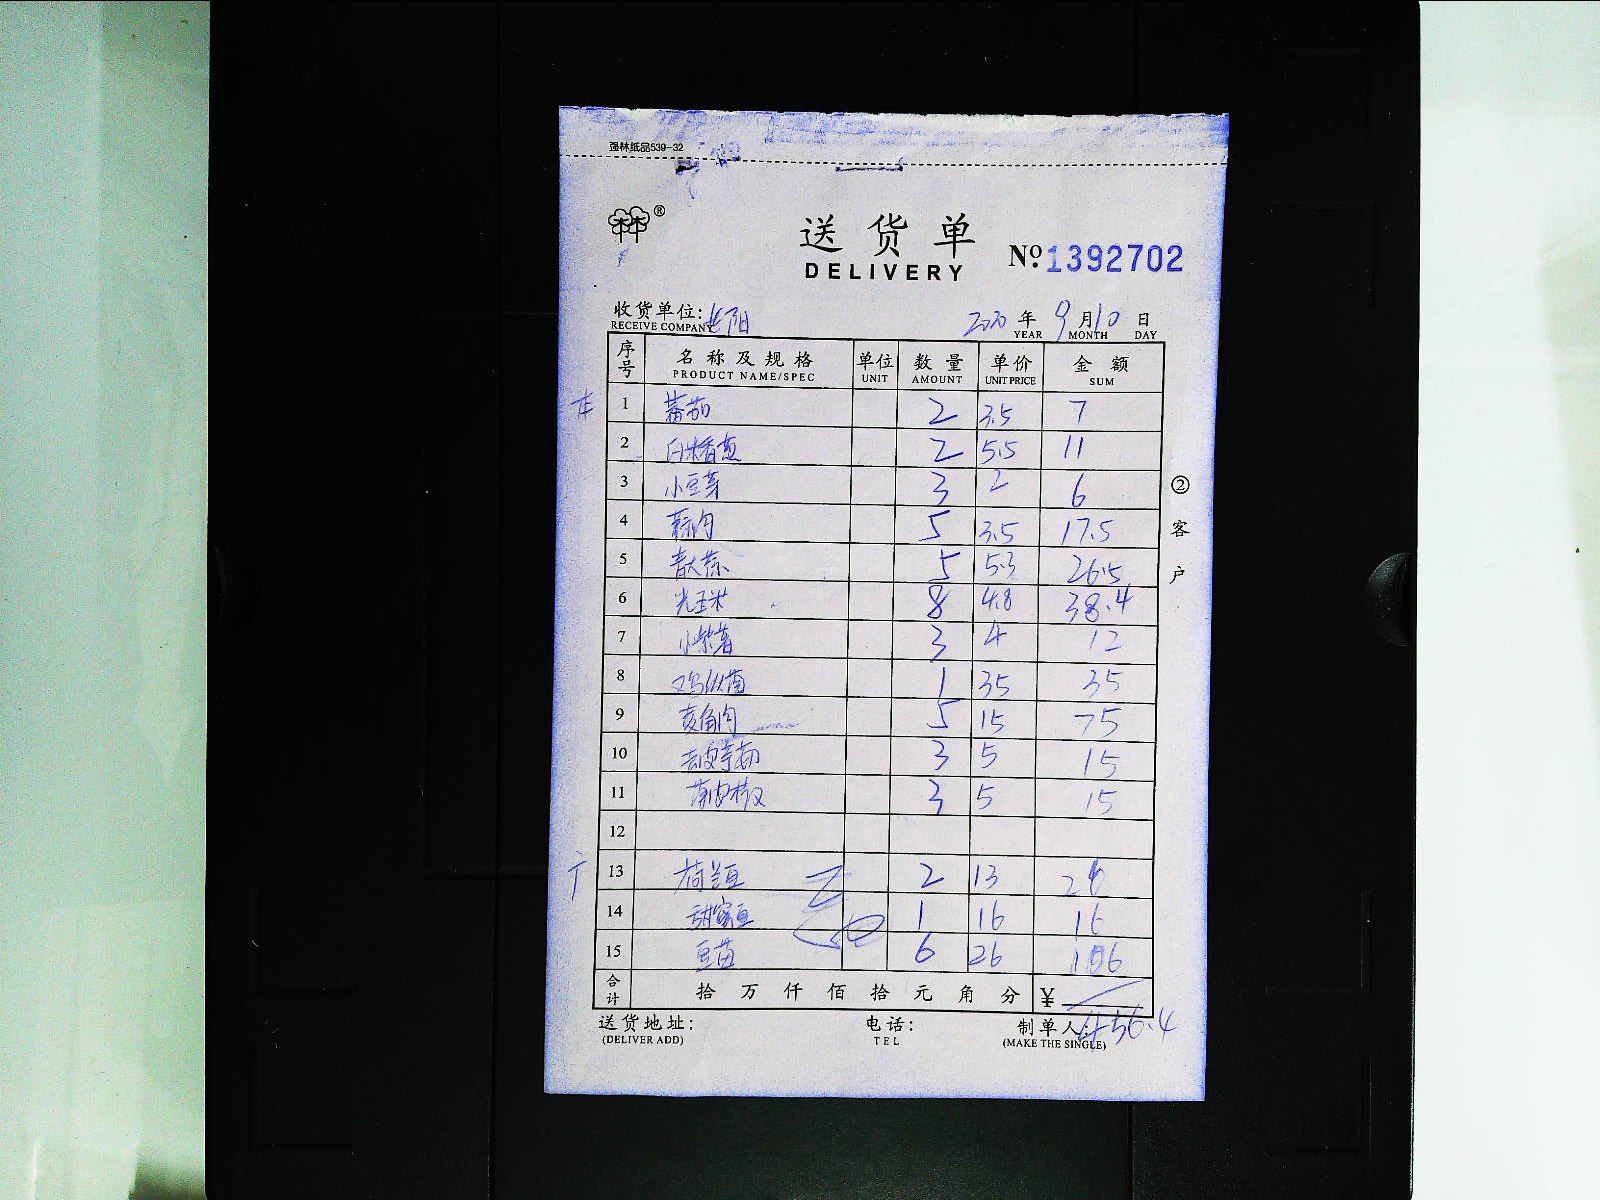 强林纸品539-32
林林®
送货单
DELIVERY
№.1392702
收货单位:
RECEIVE COMPANY
2020年9月10日
YEAR MONTH DAY
序号 名称及规格 单位 数量 单价 金额
PRODUCT NAME/SPEC UNIT AMOUNT UNIT PRICE SUM
1 蕃茄 2 3.5 7
2 白米香葱 2 5.5 11
3 小豆芽 3 2 6
4 蒜肉 5 3.5 17.5
5 5 5.3 26.5
6 光玉米 8 4.8 38.4
7 小紫薯 3 4 12
8 鸡丛菌 1 35 35
9 菱角肉 5 15 75
10 3 5 15
11 3 5 15
12
13 荷兰豆 2 13 26
14 甜蜜豆 1 16 16
15 豆苗 6 26 156
合计 拾万仟佰拾元角分 ¥
456.4
送货地址: 电话: 制单人:
(DELIVER ADD) TEL (MAKE THE SINGLE)
②客户